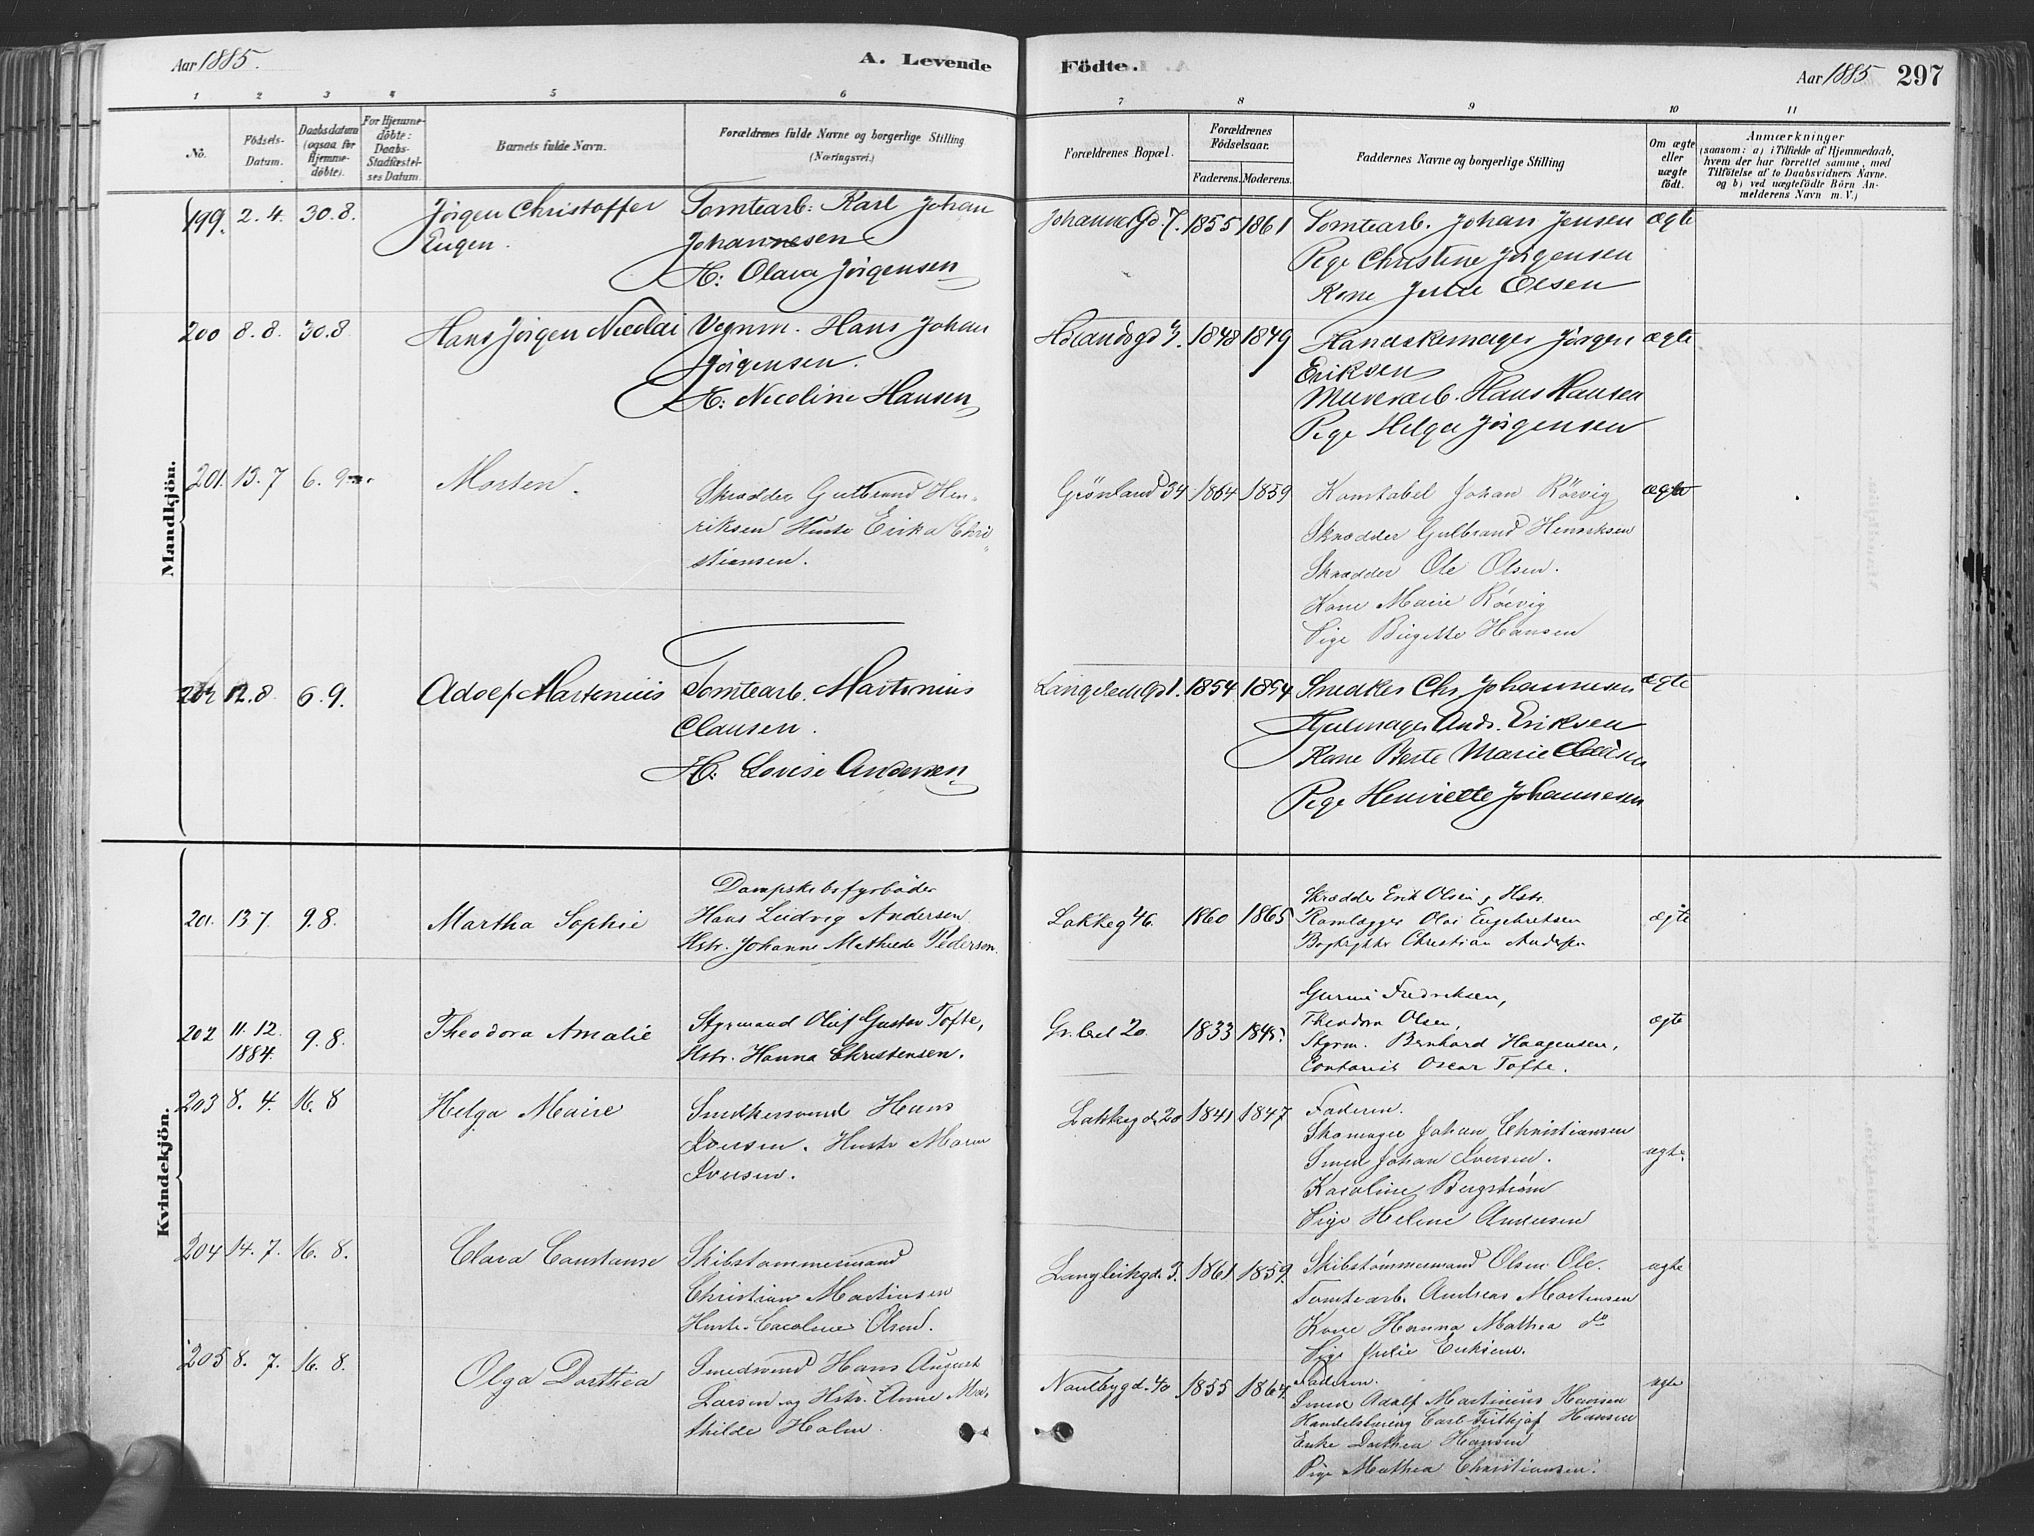 Aar 1885.
A. Levende
Födte.
Aar 1885
297
1 2 3 4 5 6 7 8 9 10 11
No.
Födsels-
Datum.
Daabsdatum
(ogsaa for
Hjemme-
döbte).
For Hjemme-
döbte:
Daabs-
Stadfæstel-
ses Datum.
Barnets fulde Navn.
Forældrenes fulde Navne og borgerlige Stilling
(Næringsvei.)
Forældrenes Bopæl.
Forældrenes
Födselsaar.
Faderens. Moderens.
Faddernes Navne og borgerlige Stilling
Om ægte
eller
uægte
födt.
Anmærkninger
(saasom: a) i Tilfælde af Hjemmedaab,
hvem der har forrettet samme, med
Tilföielse af to Daabsvidners Navne.
og b) ved uægtefödte Börn An-
melderens Navn m. V.)
Mandkjön.
199. 2. 4. 30. 8. Jörgen Christoffer
Eugen.
Tomtearb: Karl Johan
Johannesen
H: Olava Jörgensen
Johannes Gd 7. 1855 1861
Tomtearb. Johan Jensen
Pige Christine Jörgensen
Kone Julie Olsen
ægte
200 8. 8. 30. 8 Hans Jörgen Nicolai
Vognm. Hans Johan
Jörgensen.
H: Nicoline Hansen
Hölandsgd 3. 1848 1849
Handskemager Jörgen
Eriksen
Murerarb. Hans Hansen
Pige Helga Jörgensen
ægte
201. 13. 7 6. 9 Morten.
Skrædder Gulbrand Hen-
riksen Hustr Erika Chri-
stiansen.
Grönland 34 1864 1859
Konstabel Johan Rörvig
Skrædder Gulbrand Henriksen
Skrædder Ole Olsen.
Kone Marie Rörvig
Pige Birgitte Hansen
ægte
202 12. 8 6. 9. Adolf Martinius
Tomtearb. Martinius
Clausen.
H: Lovise Andersen
Langeleck Gd 1. 1854 1854
Snedker Chr Johannesen
Hjulmager Andr. Eriksen
Kone Berte Marie
Pige Henriette Johannesen
ægte
Kvindekjön.
201. 13 7 9. 8. Martha Sophie
Dampskibsfyrböder
Hans Ludvig Andersen
Hstr. Johanne Mathilde Pederson.
Lakkeg 46. 1860 1865
Skrædder Erik Olsen og Hstr.
Olai Engebretsen
Bogtrykker Christian Andersen
ægte
202 11. 12. 9. 8.
1884.
Theodora Amalie
Styrmand Oluf Gustav Tofte,
Hstr. Hanna Christensen.
Gr. leret 20. 1833 1845.
Gurine Fredriksen,
Theodora Olsen,
Styrm. Bernhard Haagensen,
Contorist Oscar Tofte.
ægte
203 8. 4. 16. 8 Helga Marie
Snedkersvend Hans
Iversen. Hustr Maren
Iversen.
Lakkegd. 20 1841 1847
Faderen.
Skomager Johan Christiansen
Smed Johan Iversen.
Karoline Bergström
Pige Helene Andersen
ægte.
204 14. 7. 16. 8. Clara Constanse
Skibstømmermand
Christian Martinsen
Hustr. Caroline Olsen.
Langleikgd. 3. 1861 1859.
Skibstømmermand Olsen Ole.
Tomtearb. Andreas Martinsen
Kone Hanna Mathea do
Pige Julie Eriksen.
ægte
205 8. 7. 16. 8. Olga Dorthea
Smedsvend Hans August
Larsen og Hstr. Anne Ma-
thilde Holm.
Nordbygd. 40 1855 1864.
Faderen.
Smed Adolf Martinius Hansen
Carl Fritjof Hansen
Enke Dorthea Hansen
Pige Mathea Christiansen.
ægte